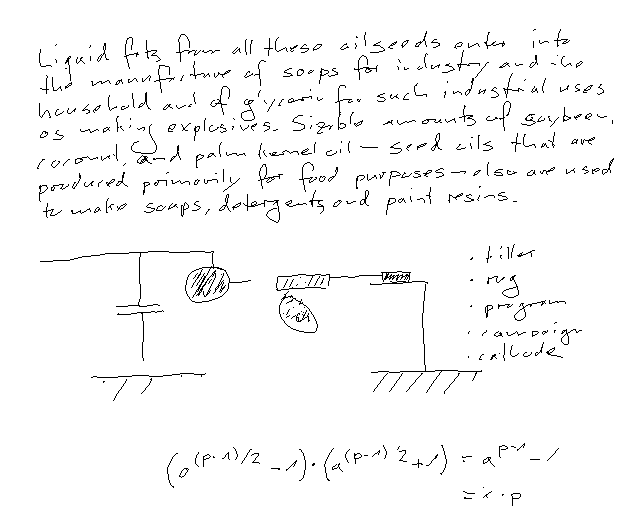 Liquid fats from all these oilseeds enter into
the manufacture of soaps for industry and the
household and of glycerin for such industrial uses
as making explosives. Sizable amounts of soybean,
coconut, and palm kernel oil – seed oils that are
produced primarily for food purposes – also are used
to make soaps, detergents and paint resins.
· tiller
· rug
· program
· campaign
· cathode
(a^(p-1)/2 - 1) · (a^(p-1) 2 + 1) = a^p-1 - 1
= · p